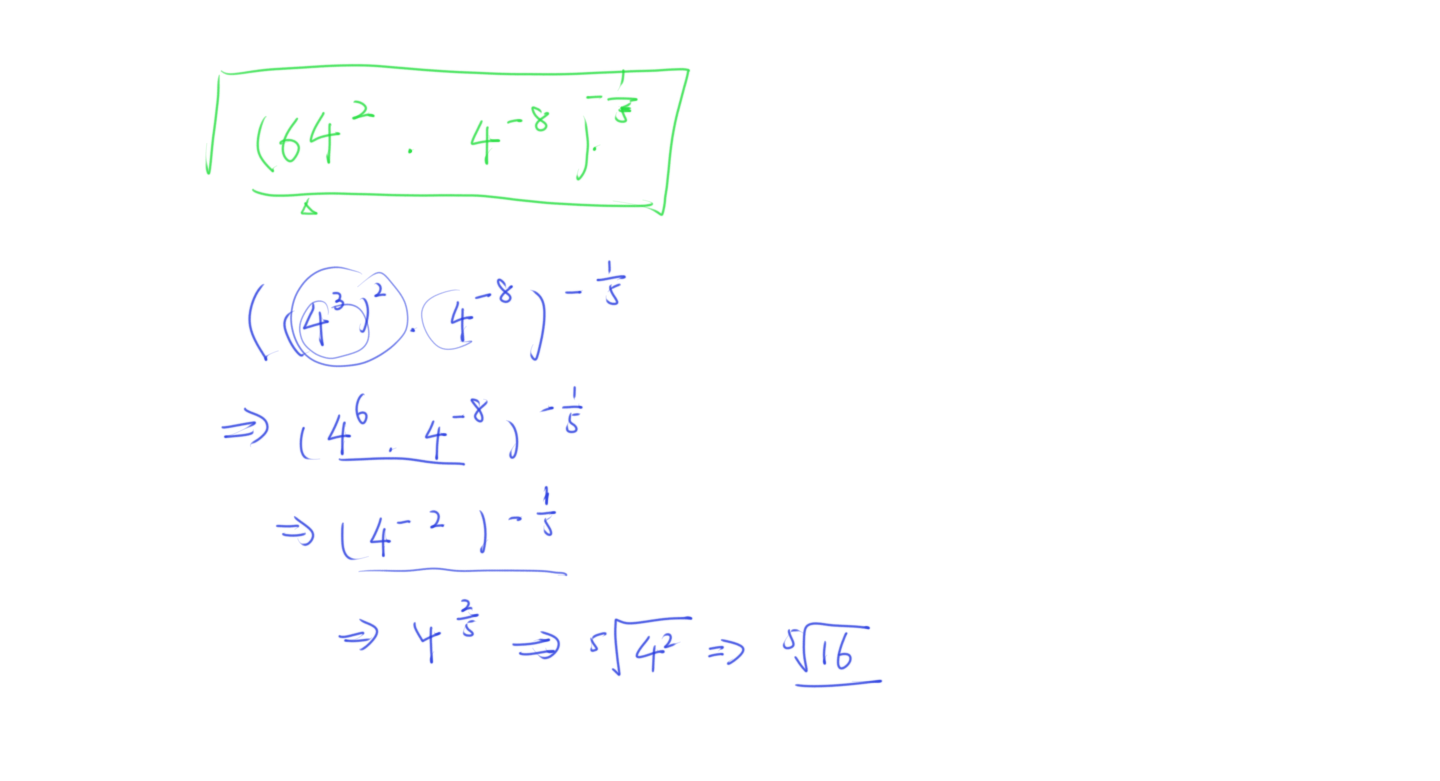 (64² · 4⁻⁸)·^(-1/5)
((4³)² · 4⁻⁸)^(-1/5)
⇒ (4⁶ · 4⁻⁸)^(-1/5)
⇒ (4⁻²)^(-1/5)
⇒ 4^(2/5) ⇒ ⁵√4² ⇒ ⁵√16